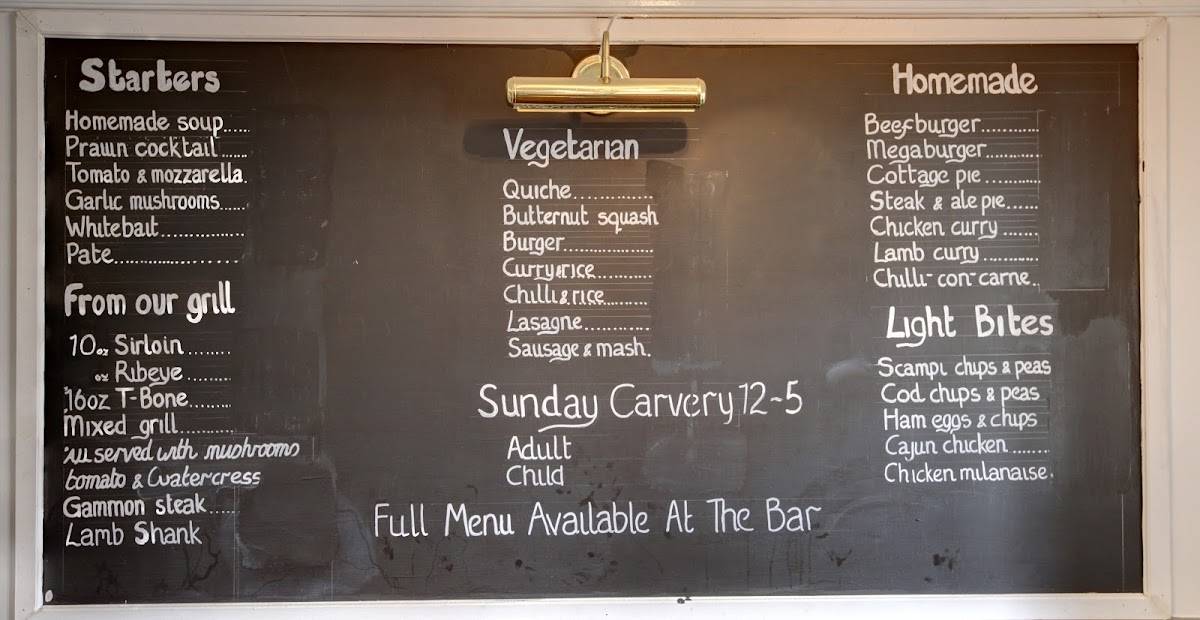 Starters
Homemade soup......
Prawn cocktail......
Tomato & mozzarella.
Garlic mushrooms.....
Whitebait...............
Pate......................
From our grill
10oz Sirloin ........
oz Ribeye ........
16oz T-Bone........
Mixed grill..........
All served with mushrooms
tomato & Watercress
Gammon steak.....
Lamb Shank
Vegetarian
Quiche..............
Butternut squash
Burger...............
Curry & rice..........
Chilli & rice........
Lasagne............
Sausage & mash.
Sunday Carvery 12-5
Adult
Child
Full Menu Available At The Bar
Homemade
Beefburger...........
Megaburger..........
Cottage pie ..........
Steak & ale pie......
Chicken curry .......
Lamb curry ..........
Chilli-con-carne..
Light Bites
Scampi chips & peas
Cod chips & peas
Ham eggs & chips
Cajun chicken .......
Chicken milanaise.